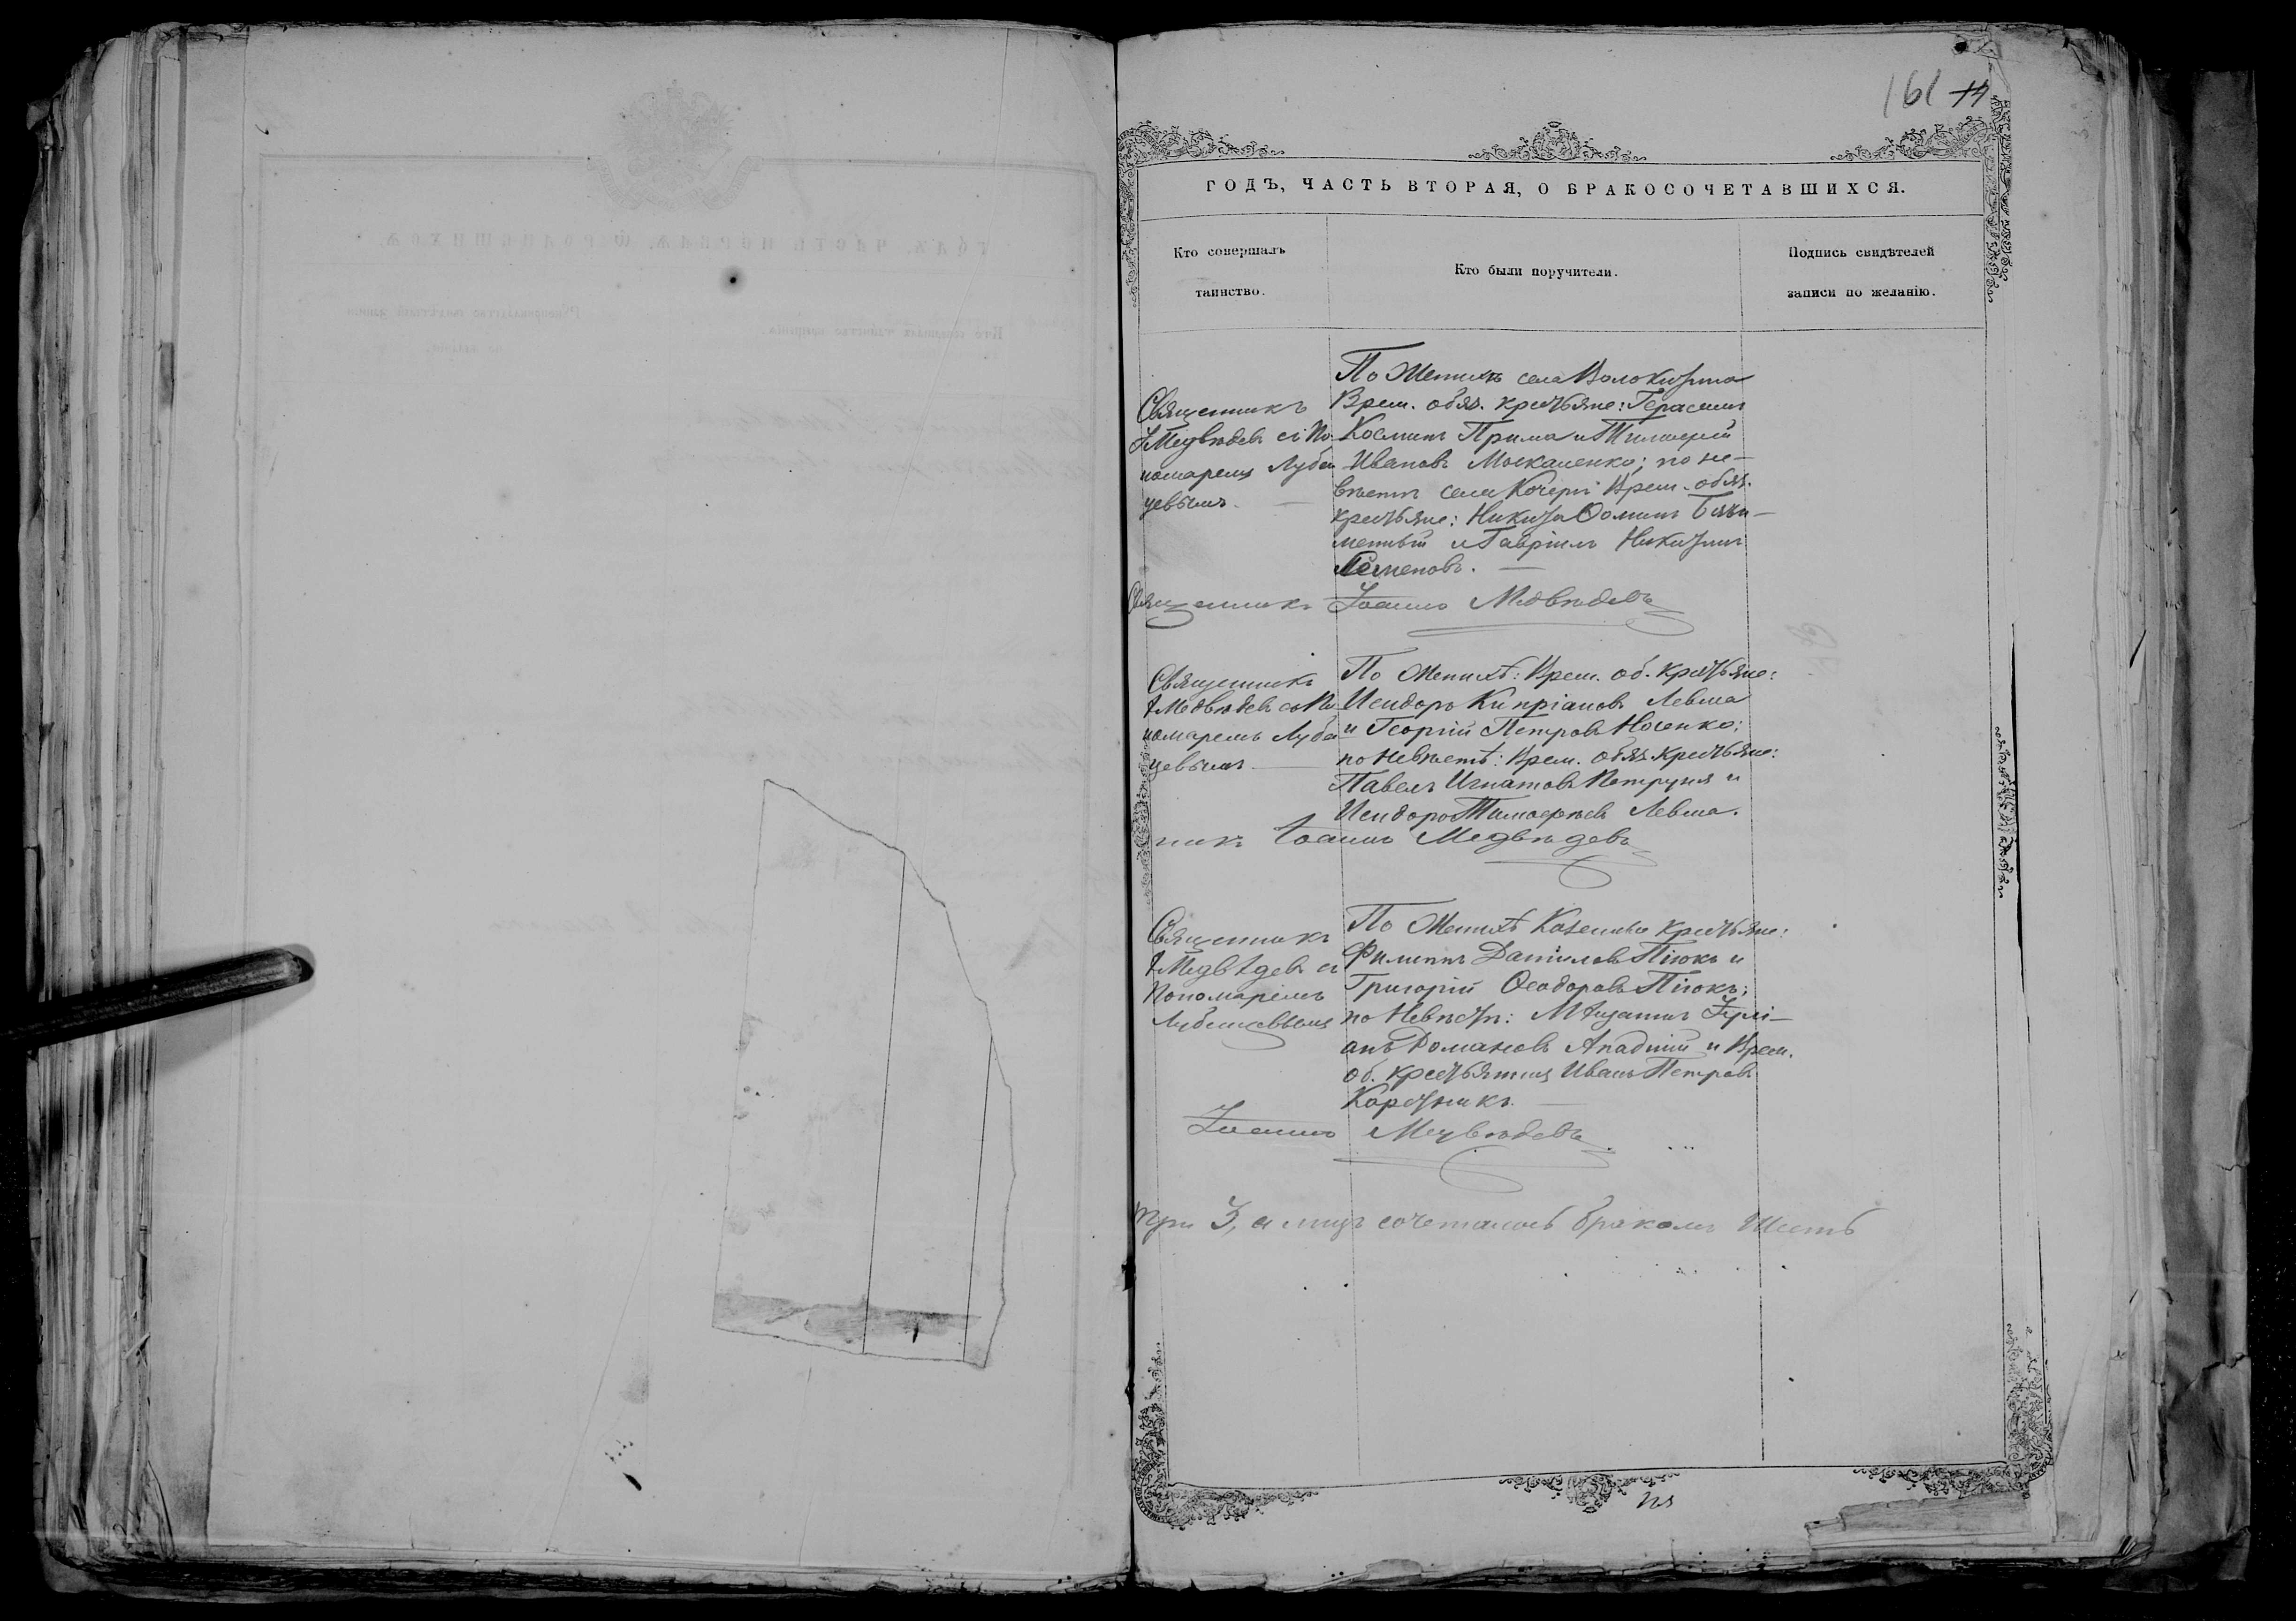 161 14
ГОДЪ, ЧАСТЬ ВТОРАЯ, О БРАКОСОЧЕТАВШИХСЯ.
Кто совершалъ
таинство.
Кто были поручители.
Подпись свидѣтелей
записи по желанію.
Священникъ
І Медвѣдевъ съ По
номаремъ Лубен
цевымъ.
По Женихѣ села Волокитина
Врем. обяз. крестьяне: Герасимъ
Косминъ Прима и Тимоѳей
Ивановъ Москаленко; по не-
вѣстѣ села Кочерги Врем. обяз.
крестьяне: Никита Ѳоминъ
и Гавріилъ Никитинъ
Священникъ Іоаннъ Медвѣдевъ
Священникъ
І Медвѣдевъ съ По
номаремъ Лубен
цевымъ
По Женихѣ: Врем. об. крестьяне:
Исидоръ Кипріановъ Левша
и Георгій Петровъ Носенко;
по Невѣстѣ: Врем. обяз. крестьяне:
Павелъ Игнатовъ Петруня и
Исидоръ Тимоѳеевъ Левша.
никъ Іоаннъ Медвѣдевъ
Священникъ
І Медвѣдевъ съ
Пономаремъ
Лубенцевымъ
По Женихѣ Казенные крестьяне:
Филиппъ Даніиловъ Піюкъ и
Григорій Ѳеодоровъ Піюкъ;
по Невѣстѣ: Мѣщанинъ Іулі-
анъ Романовъ и Врем.
об. крестьянинъ Иванъ Петровъ
Іоаннъ Медвѣдевъ
три 3, а лицъ сочеталось бракомъ шесть